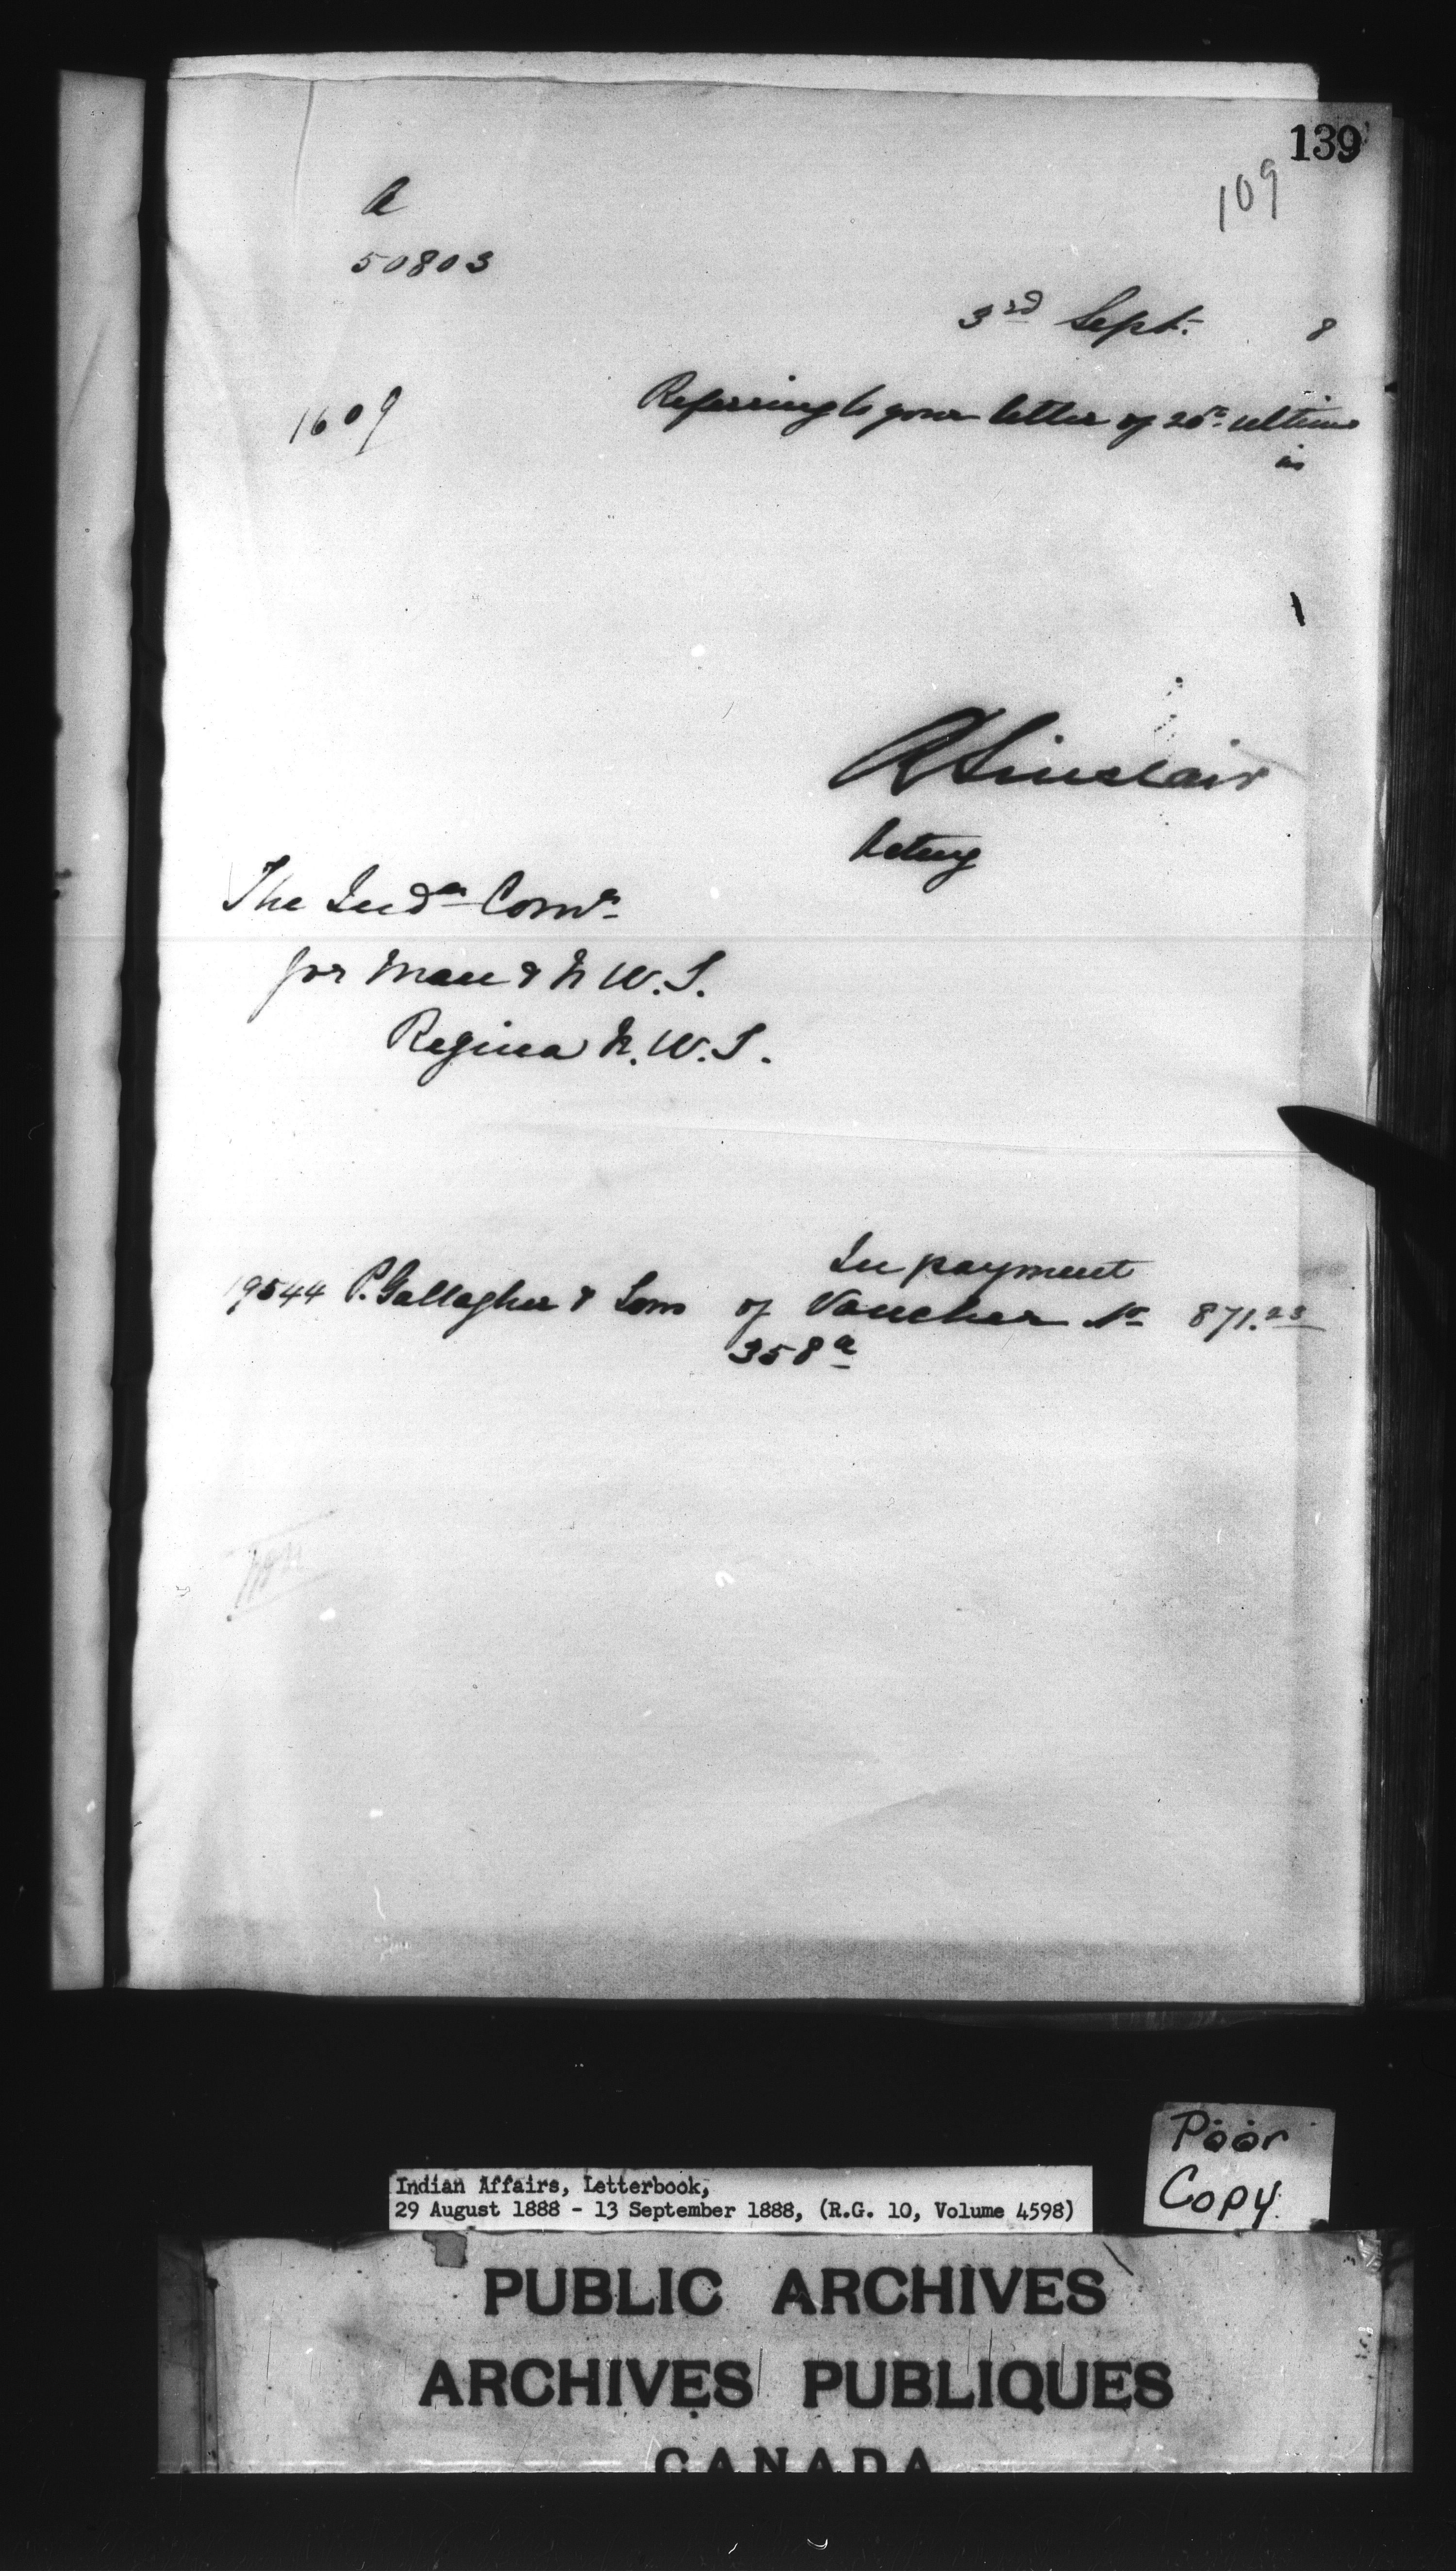 139
109
A
50803
3rd Sept. 8
1609
Referring to your letter of 25th ultimo
is
R Sinclair
Acting
The Indn Comr
for Man & N W.T.
Regina N.W.T.
In payment
19544 P. Gallagher & Sons of Voucher No 871.23
358a
Poor
Copy.
Indian Affairs, Letterbook,
29 August 1888 - 13 September 1888, (R.G. 10, Volume 4598)
PUBLIC ARCHIVES
ARCHIVES PUBLIQUES
CANADA